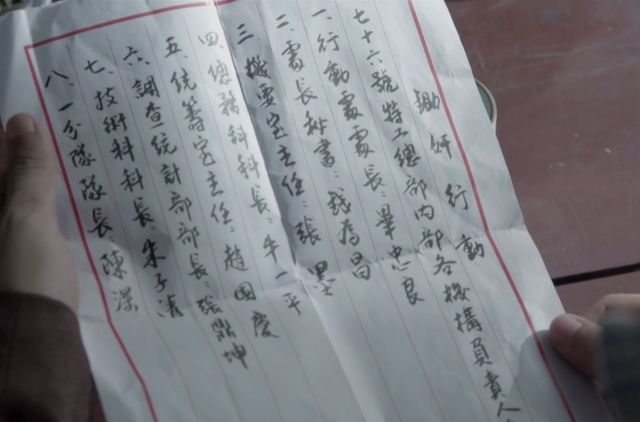 鋤奸行動
七十六號特工總部內部各機構負責人
一、行動處處長：畢忠良
二、處長秘書：錢為昌
三、機要室主任：張墨
四、總務科科長：牛一平
五、統籌室主任：趙國慶
六、調查統計部部長：張鼎坤
七、技術科科長 朱子清
八、一分隊隊長 陳深